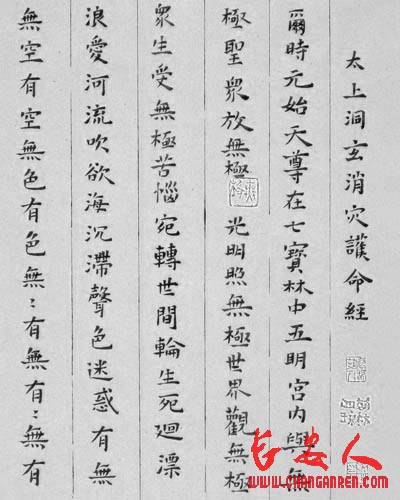 太上洞玄消灾護命經
爾時元始天尊在七寶林中五明宮内與無
極聖衆放無極光明照無極世界觀無極
衆生受無極苦惱宛轉世間輪生死迴漂
浪愛河流吹欲海沉滯聲色迷惑有無
無空有空無色有色無〻有無有〻無有
长安人
WWW.CHANGANREN.COM